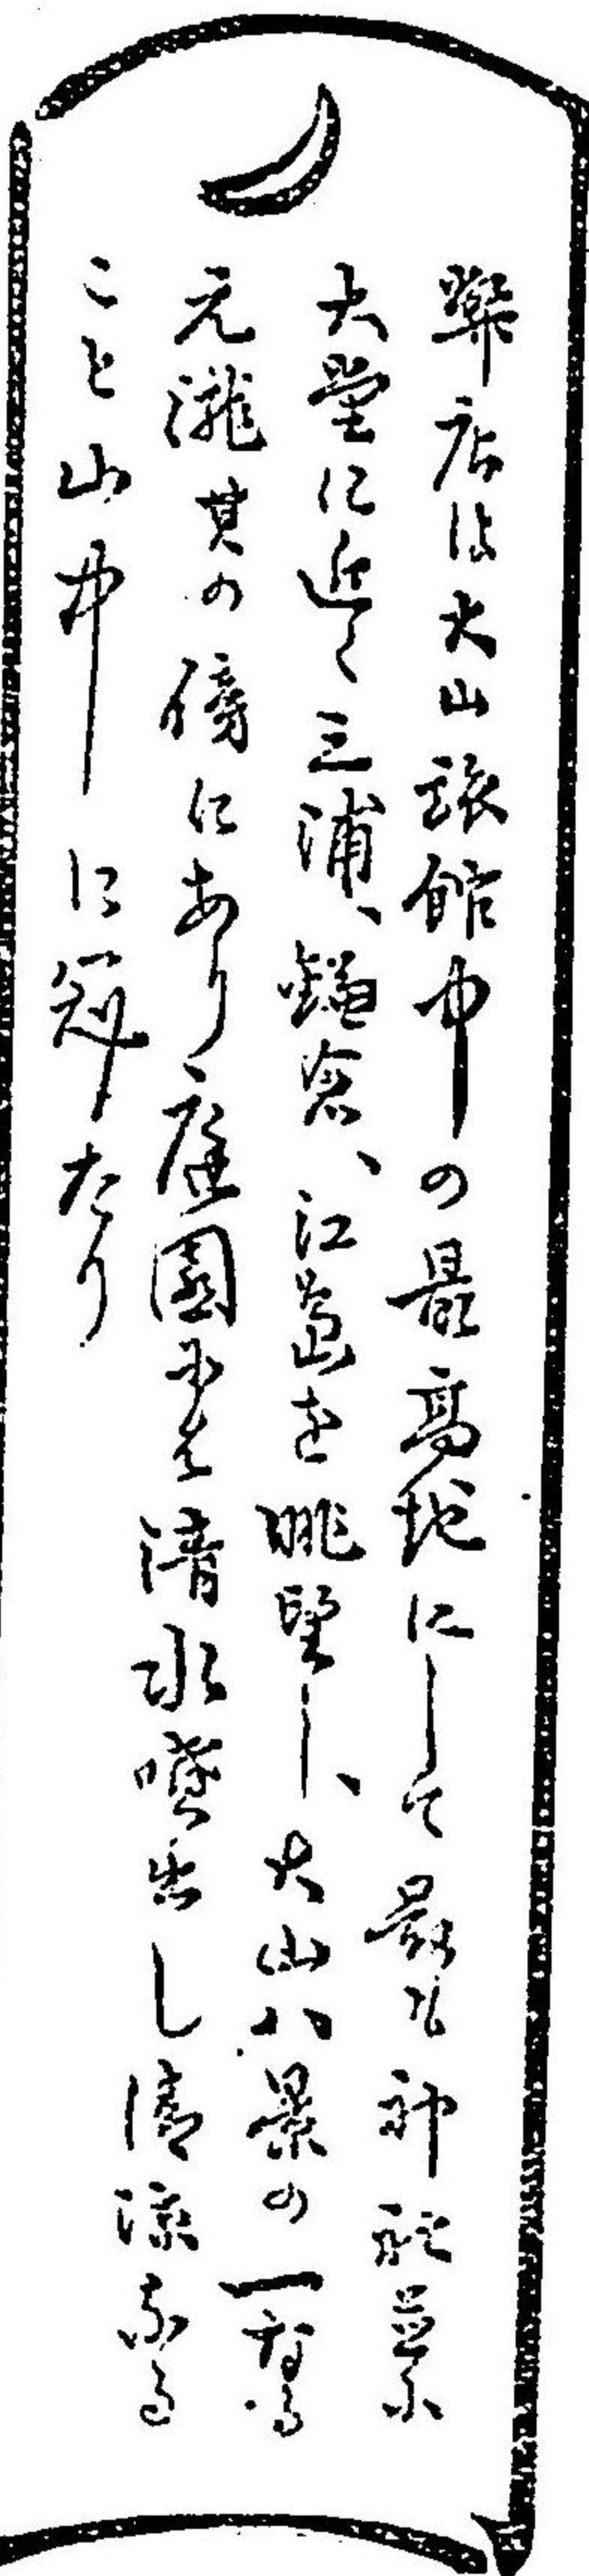 弊店は大山旅館中の最高地にして最も神社並に
大堂に近く三浦、鎌倉、江島を眺望し、大山八景の一なる
元瀧其の傍にあり庭園よりは清水噴出し清涼なる
こと山中に冠たり